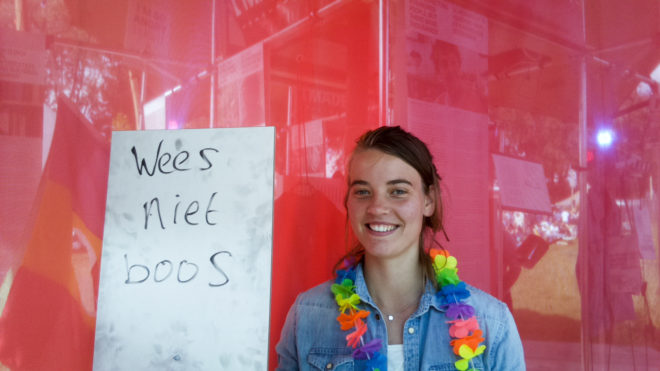 Wees
niet
boos